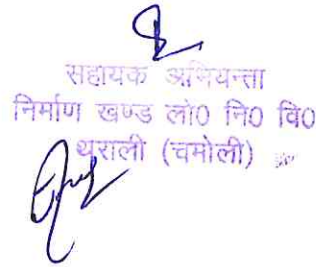 सहायक अभियन्ता
निर्माण खण्ड लो0 नि0 वि0
थराली (चमोली)